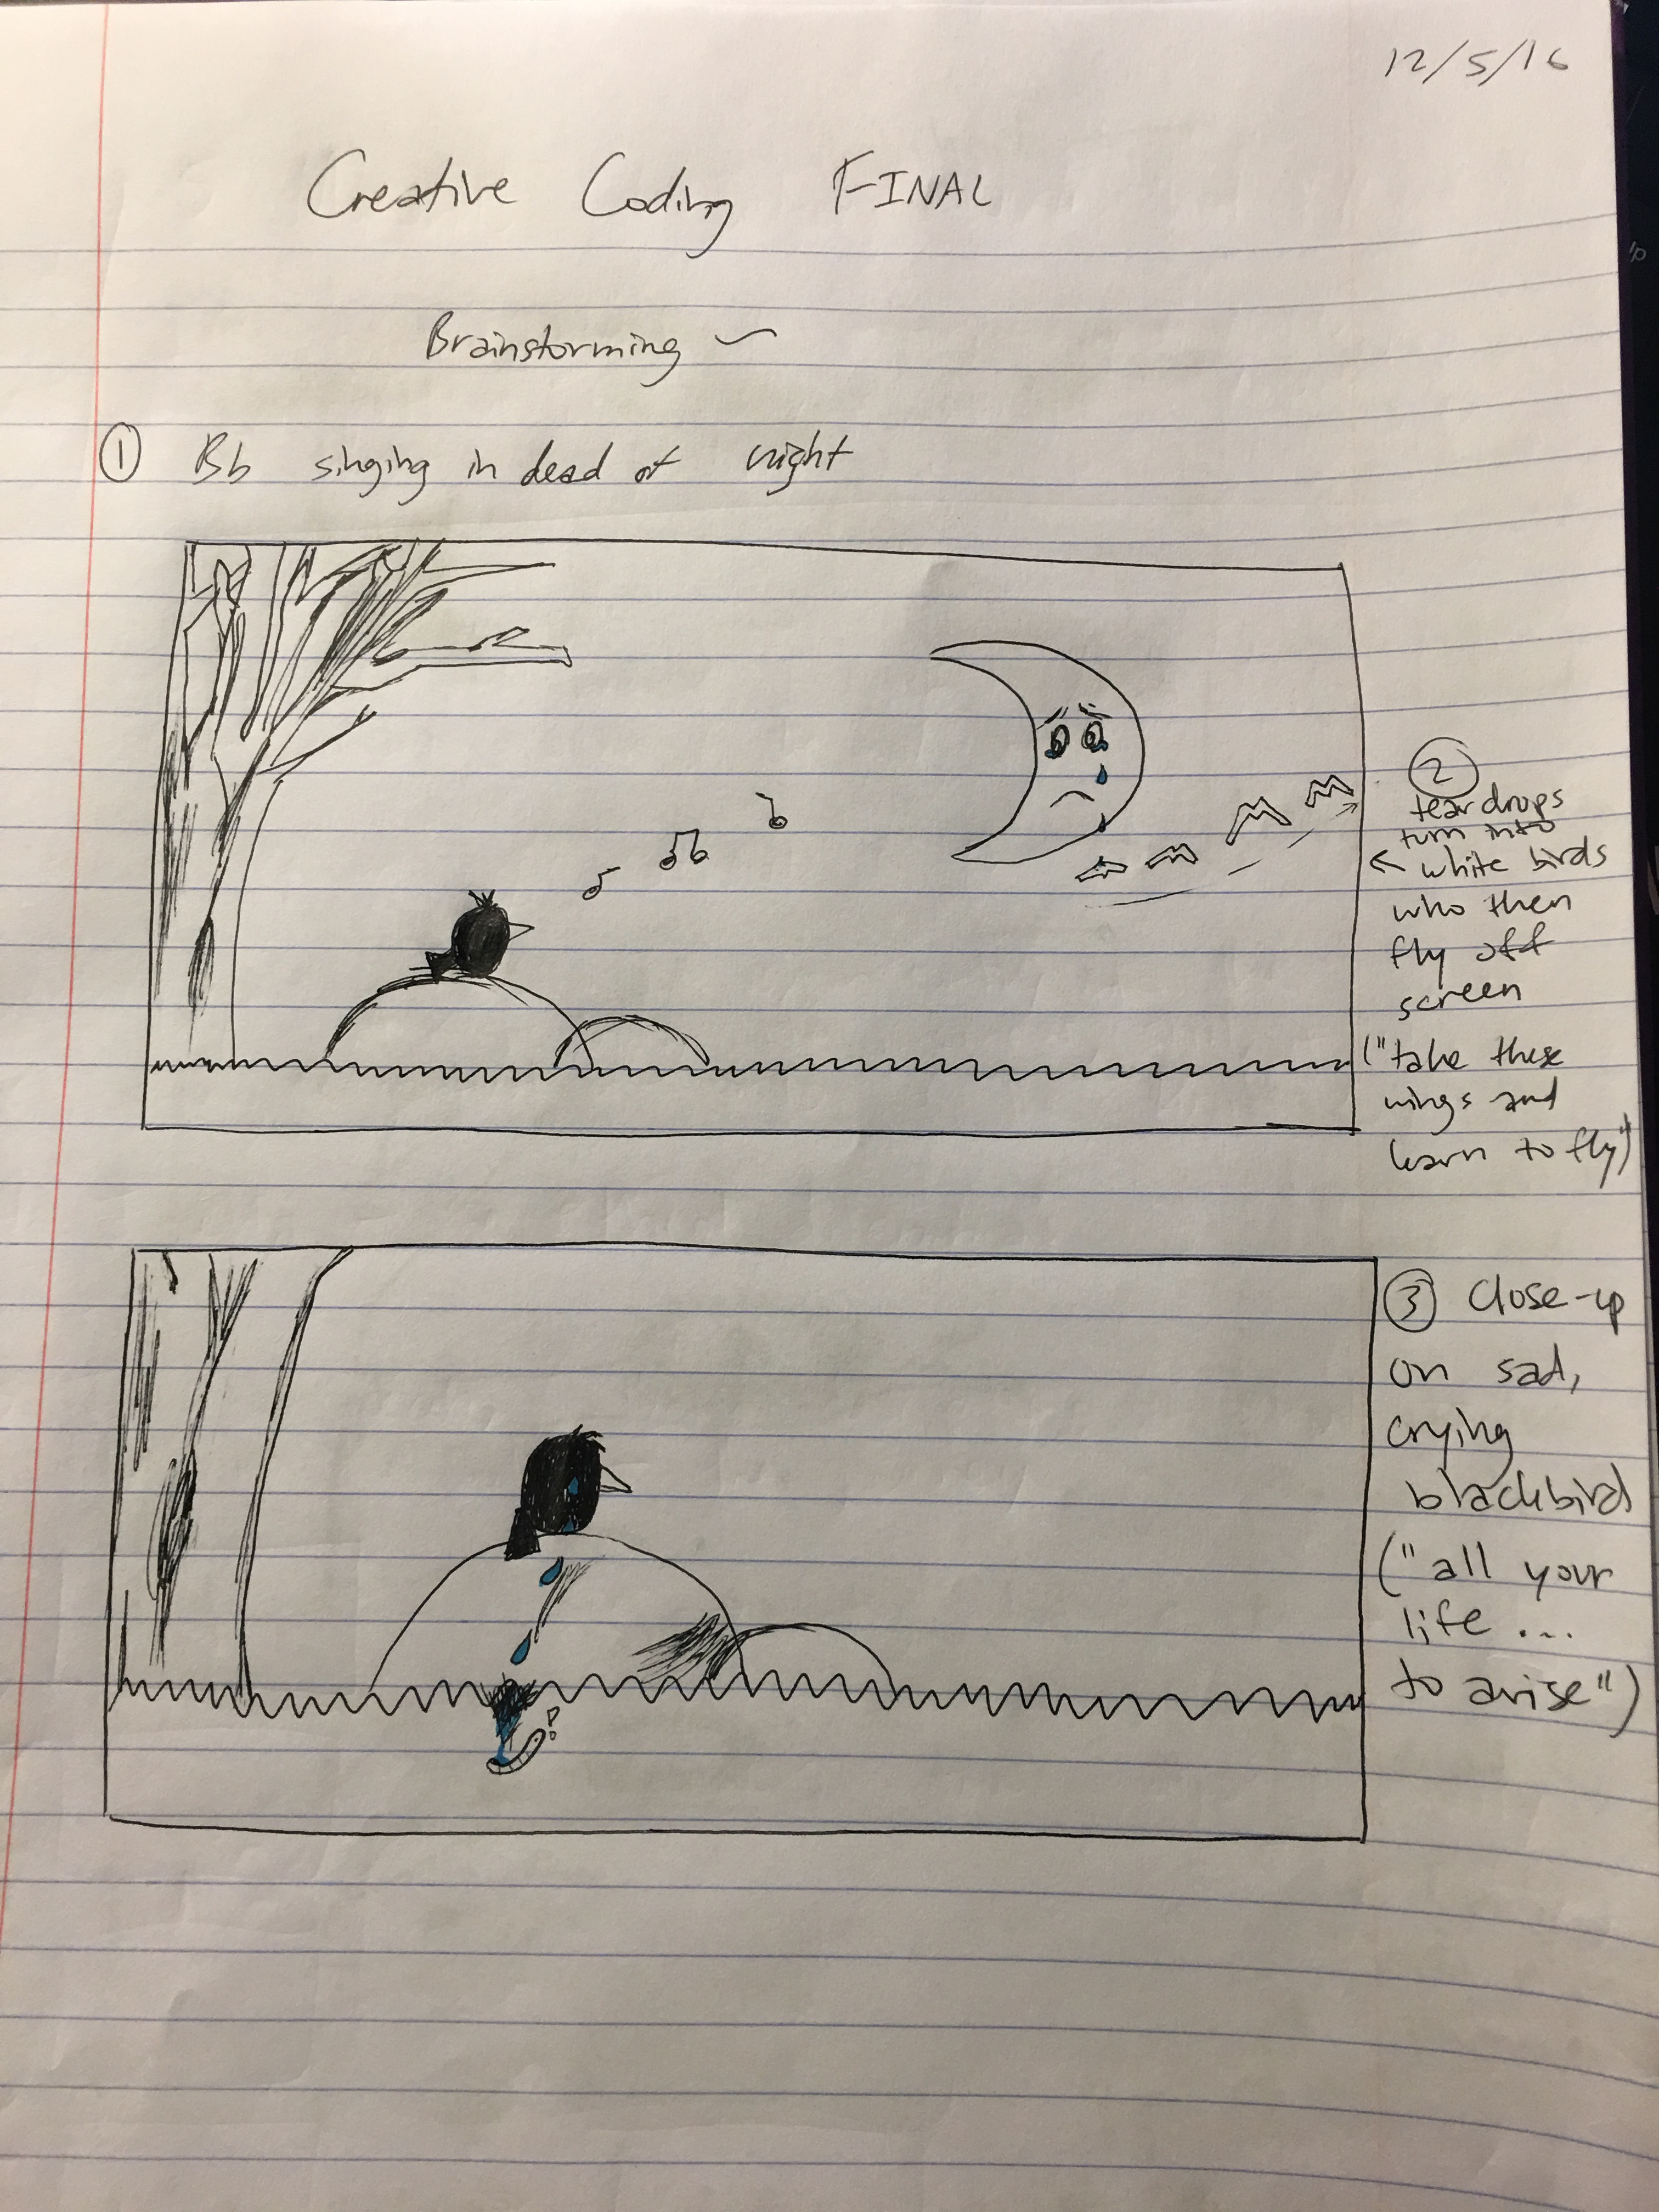 12/5/16
Creative Coding FINAL
Brainstorming ~
① Bb singing in dead of night
②
teardrops
turn into
← white birds
who then
fly off
screen
("take these
wings and
learn to fly")
③ Close-up
on sad,
crying
blackbird
("all your
life ...
to arise")